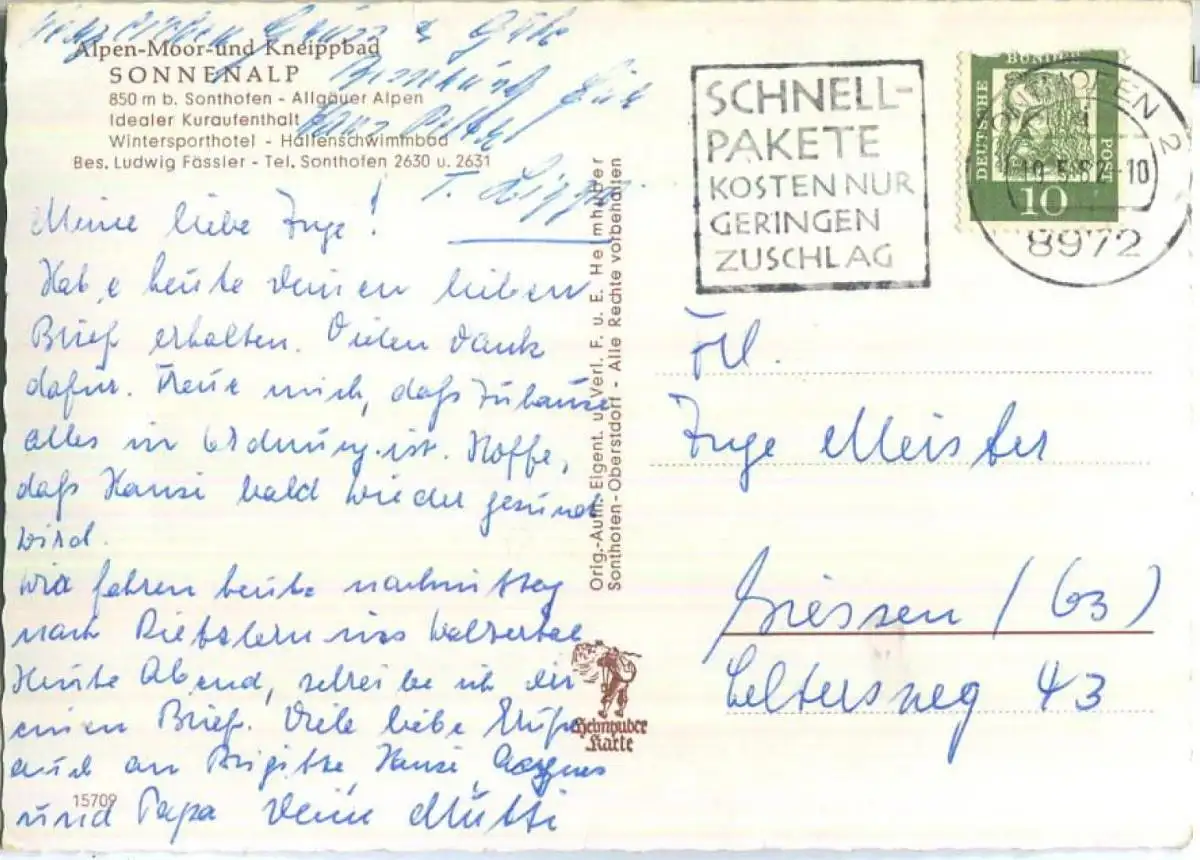 Herzlichen Gruss &
Alpen-Moor-und Kneippbad
SONNENALP
850 m b. Sonthofen - Allgäuer Alpen
Idealer Kuraufenthalt
Wintersporthotel - Hallenschwimmbad
Bes. Ludwig Fässler - Tel. Sonthofen 2630 u. 2631
Meine liebe Inge!
Habe heute deinen lieben
Brief erhalten. Vielen Dank
dafür. Freue mich, daß Zuhause
alles in Ordnung ist. Hoffe,
daß Hansi bald wieder gesund
wird.
Wir fahren heute nachmittag
nach Rietzlern ins Walsertal
Heute Abend, schreibe ich dir
einen Brief. Viele liebe Grüße
auch an Brigitte, Hansi,
und Papa Deine Mutti
15709
Orig.-Aufn. Eigent. u. Verl. F. u. E. Heimhuber
Sonthofen-Oberstdorf - Alle Rechte vorbehalten
Heimhuber
Karte
SCHNELL-
PAKETE
KOSTEN NUR
GERINGEN
ZUSCHLAG
DEUTSCHE
BUNDES
POST
10
SONTHOFEN 2
10.5.62-10
8972
Frl.
Inge Meister
Giessen (63)
Seltersweg 43